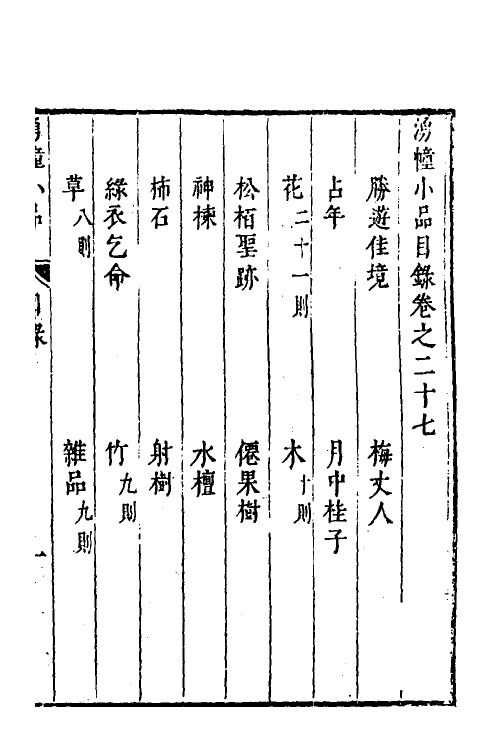 湧幢小品目錄卷之二十七
勝遊佳境　梅丈人
占年　月中桂子
花二十一則　木十則
松栢聖跡　僊果樹
神楝　水檀
柿石　射樹
綠衣乞命　竹九則
草八則　雜品九則
湧幢小品　目錄　一